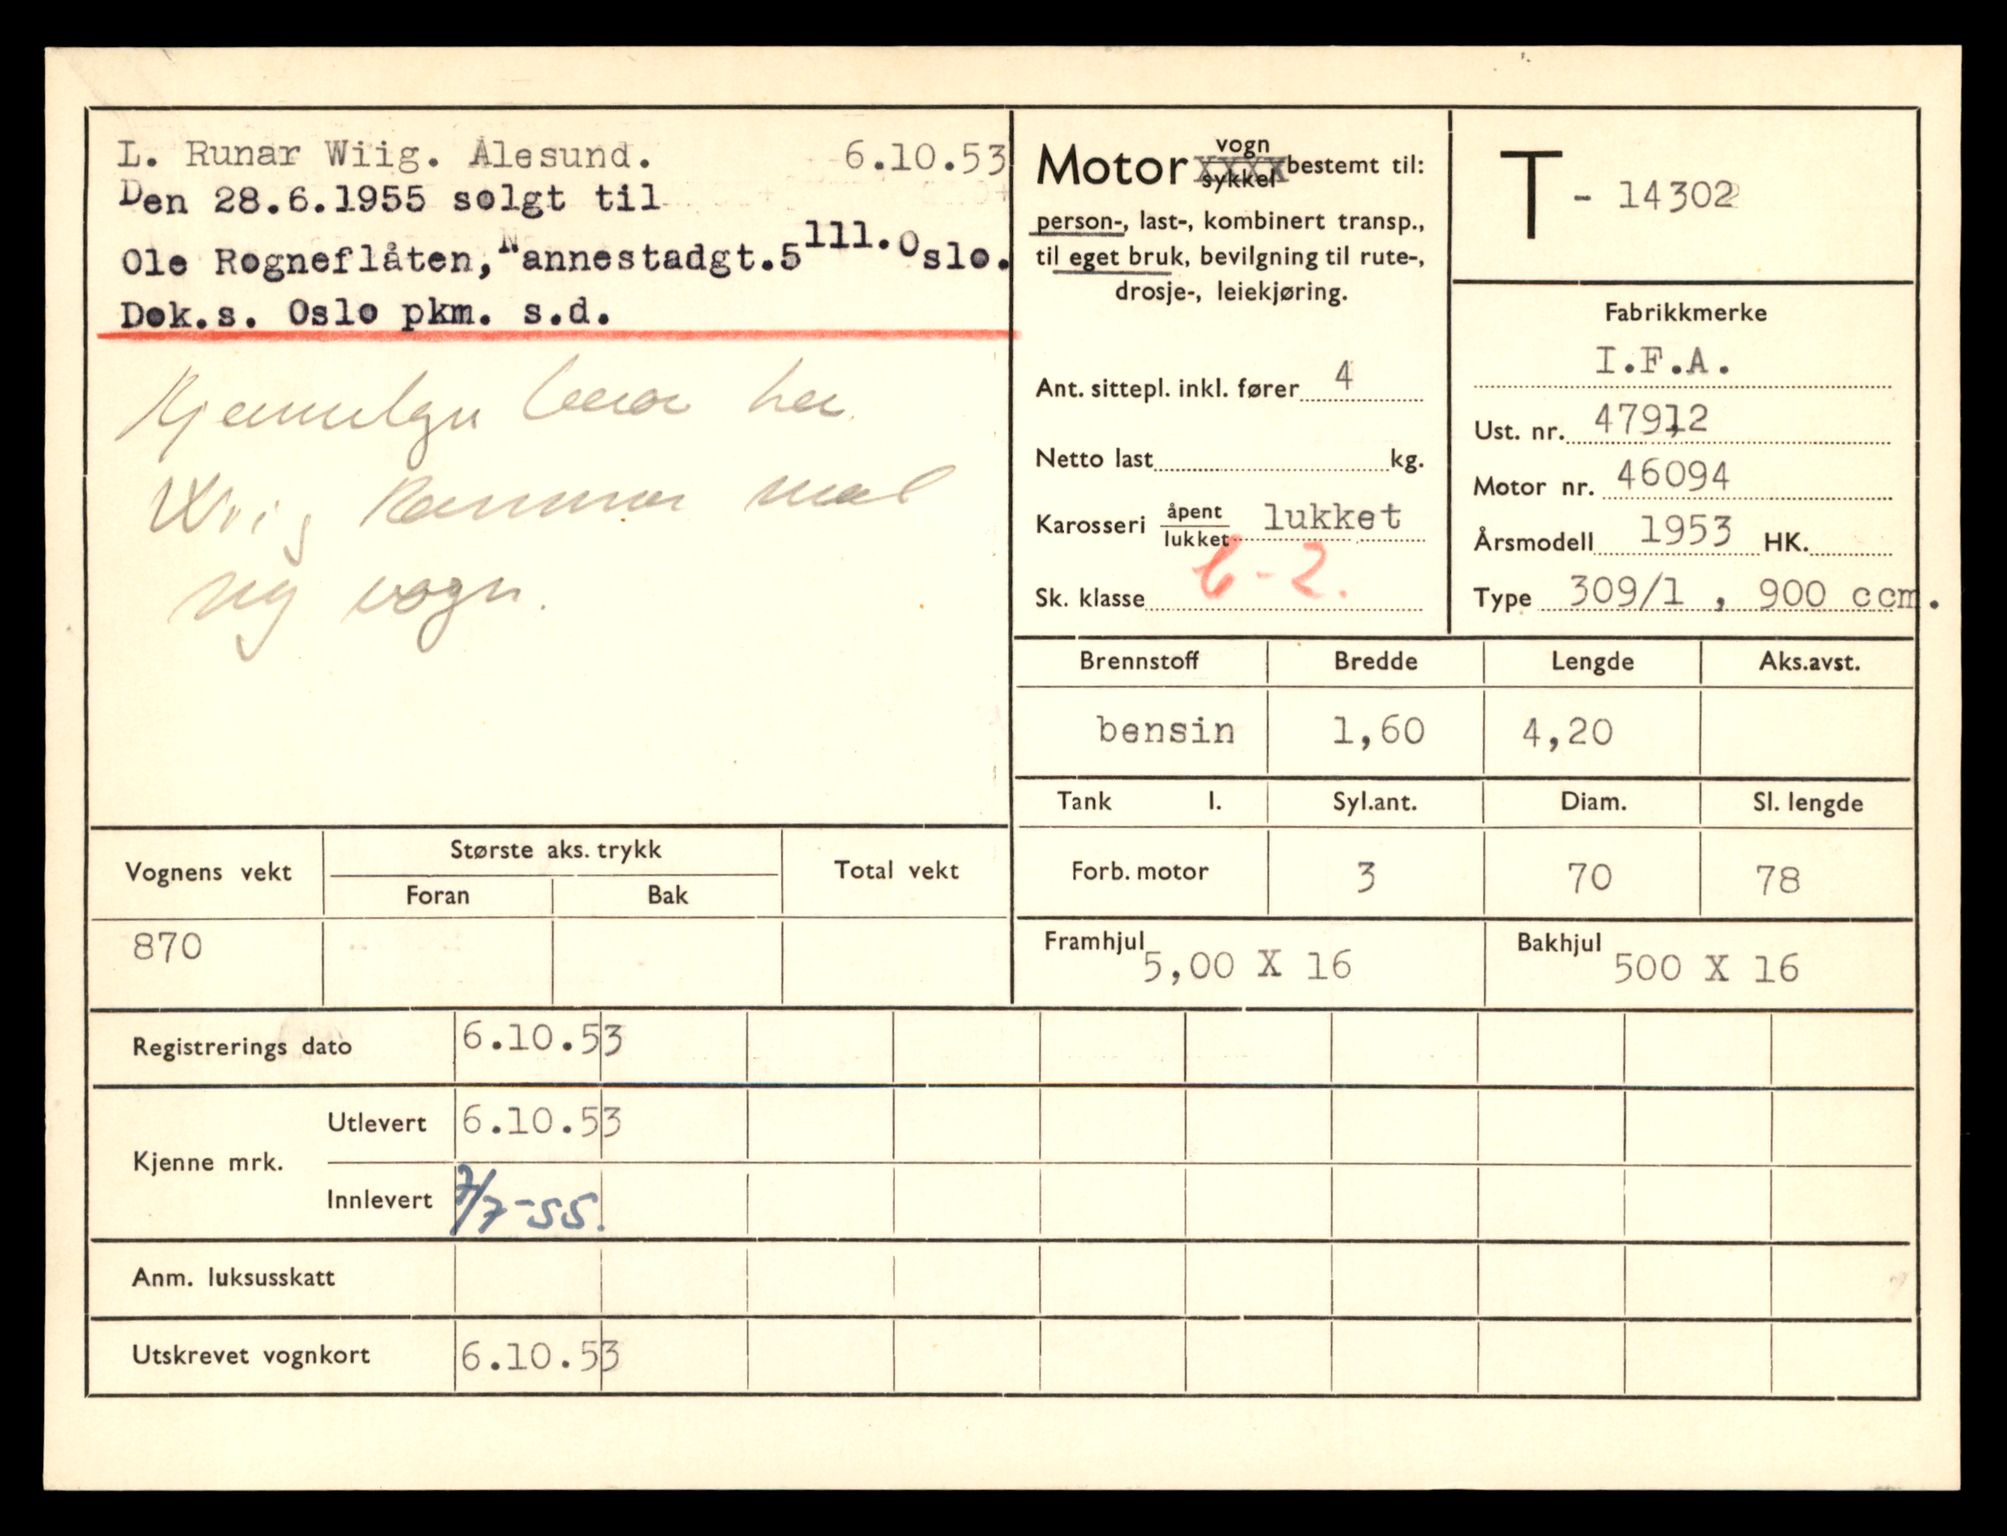 L. Runar Wiig. Ålesund. 6.10.53
Den 28.6.1955 solgt til
Ole Rogneflåten, Nannestadgt.5 111. Oslo.
Dok.s. Oslo pkm. s.d.
her
Wiig kommer med
ny vogn.
Motor vogn sykkel bestemt til:
person-, last-, kombinert transp.,
til eget bruk, bevilgning til rute-,
drosje-, leiekjøring.
Ant. sittepl. inkl. fører 4
Netto last kg.
Karosseri åpent lukket lukket
Sk. klasse 6-2.
T - 14302
Fabrikkmerke
I.F.A.
Ust. nr. 47912
Motor nr. 46094
Årsmodell 1953 HK.
Type 309/1 , 900 ccm.
Brennstoff Bredde Lengde Aks.avst.
bensin 1,60 4,20
Tank l. Syl.ant. Diam. Sl. lengde
Forb. motor 3 70 78
Framhjul 5,00 X 16 Bakhjul 500 X 16
Vognens vekt Største aks. trykk Total vekt
Foran Bak
870
Registrerings dato 6.10.53
Kjenne mrk. Utlevert 6.10.53
Innlevert 7/7-55.
Anm. luksusskatt
Utskrevet vognkort 6.10.53